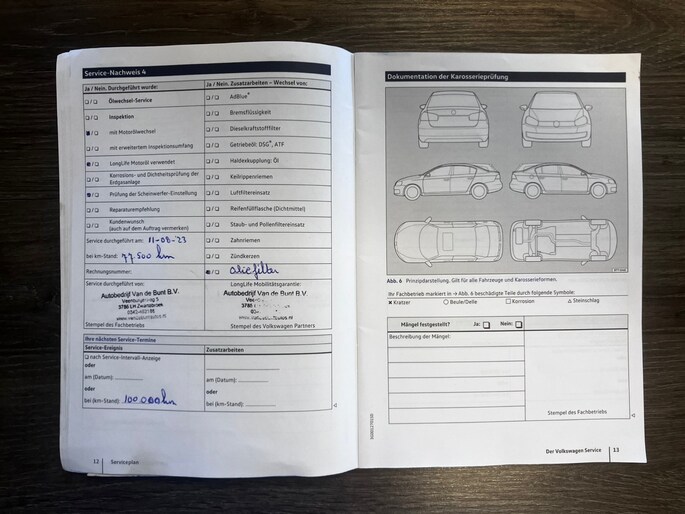 Service-Nachweis 4
Ja / Nein. Durchgeführt wurde:
Ölwechsel-Service
Inspektion
mit Motorölwechsel
mit erweitertem Inspektionsumfang
LongLife Motoröl verwendet
Korrosions- und Dichtheitsprüfung der Erdgasanlage
Prüfung der Scheinwerfer-Einstellung
Reparaturempfehlung
Kundenwunsch
(auch auf dem Auftrag vermerken)
Service durchgeführt am: 11-08-23
bei km-Stand: 77.500 km
Rechnungsnummer:
Service durchgeführt von:
Autobedrijf Van de Bunt B.V.
Stempel des Fachbetriebs
Ja / Nein. Zusatzarbeiten – Wechsel von:
AdBlue®
Bremsflüssigkeit
Dieselkraftstofffilter
Getriebeöl: DSG®, ATF
Haldexkupplung: Öl
Keilrippenriemen
Luftfiltereinsatz
Reifenfüllflasche (Dichtmittel)
Staub- und Pollenfiltereinsatz
Zahnriemen
Zündkerzen
oliefilter
LongLife Mobilitätsgarantie:
Autobedrijf Van de Bunt B.V.
Stempel des Volkswagen Partners
Ihre nächsten Service-Termine
Service-Ereignis
nach Service-Intervall-Anzeige
oder
am (Datum):
oder
bei (km-Stand): 100.000 km
Zusatzarbeiten
am (Datum):
oder
bei (km-Stand):
12 Serviceplan
Dokumentation der Karosserieprüfung
Abb. 6 Prinzipdarstellung. Gilt für alle Fahrzeuge und Karosserieformen.
Ihr Fachbetrieb markiert in → Abb. 6 beschädigte Teile durch folgende Symbole:
Kratzer Beule/Delle Korrosion Steinschlag
Mängel festgestellt? Ja: Nein:
Beschreibung der Mängel:
Stempel des Fachbetriebs
Der Volkswagen Service 13